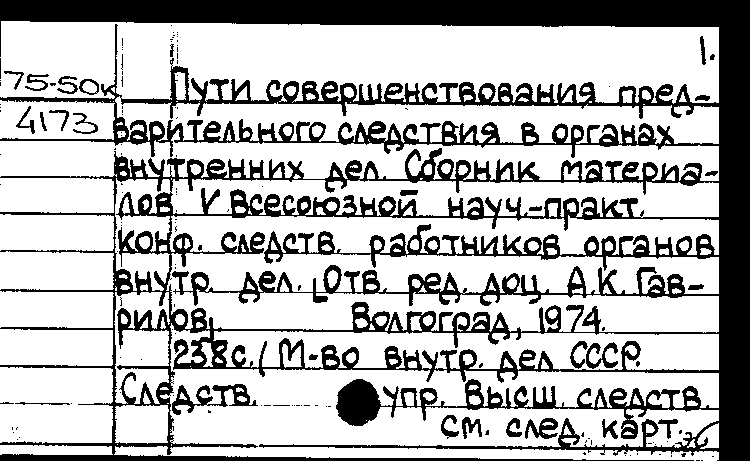 1.
75-50к Пути совершенствования пред-
4173 варительного следствия в органах
внутренних дел. Сборник материа-
лов V Всесоюзной науч.-практ.
конф. следств. работников органов
внутр. дел. [Отв. ред. доц. А.К. Гав-
рилов]. Волгоград, 1974.
238с. (М-во внутр. дел СССР.
Следств. упр. Высш. следств.
см. след. карт.